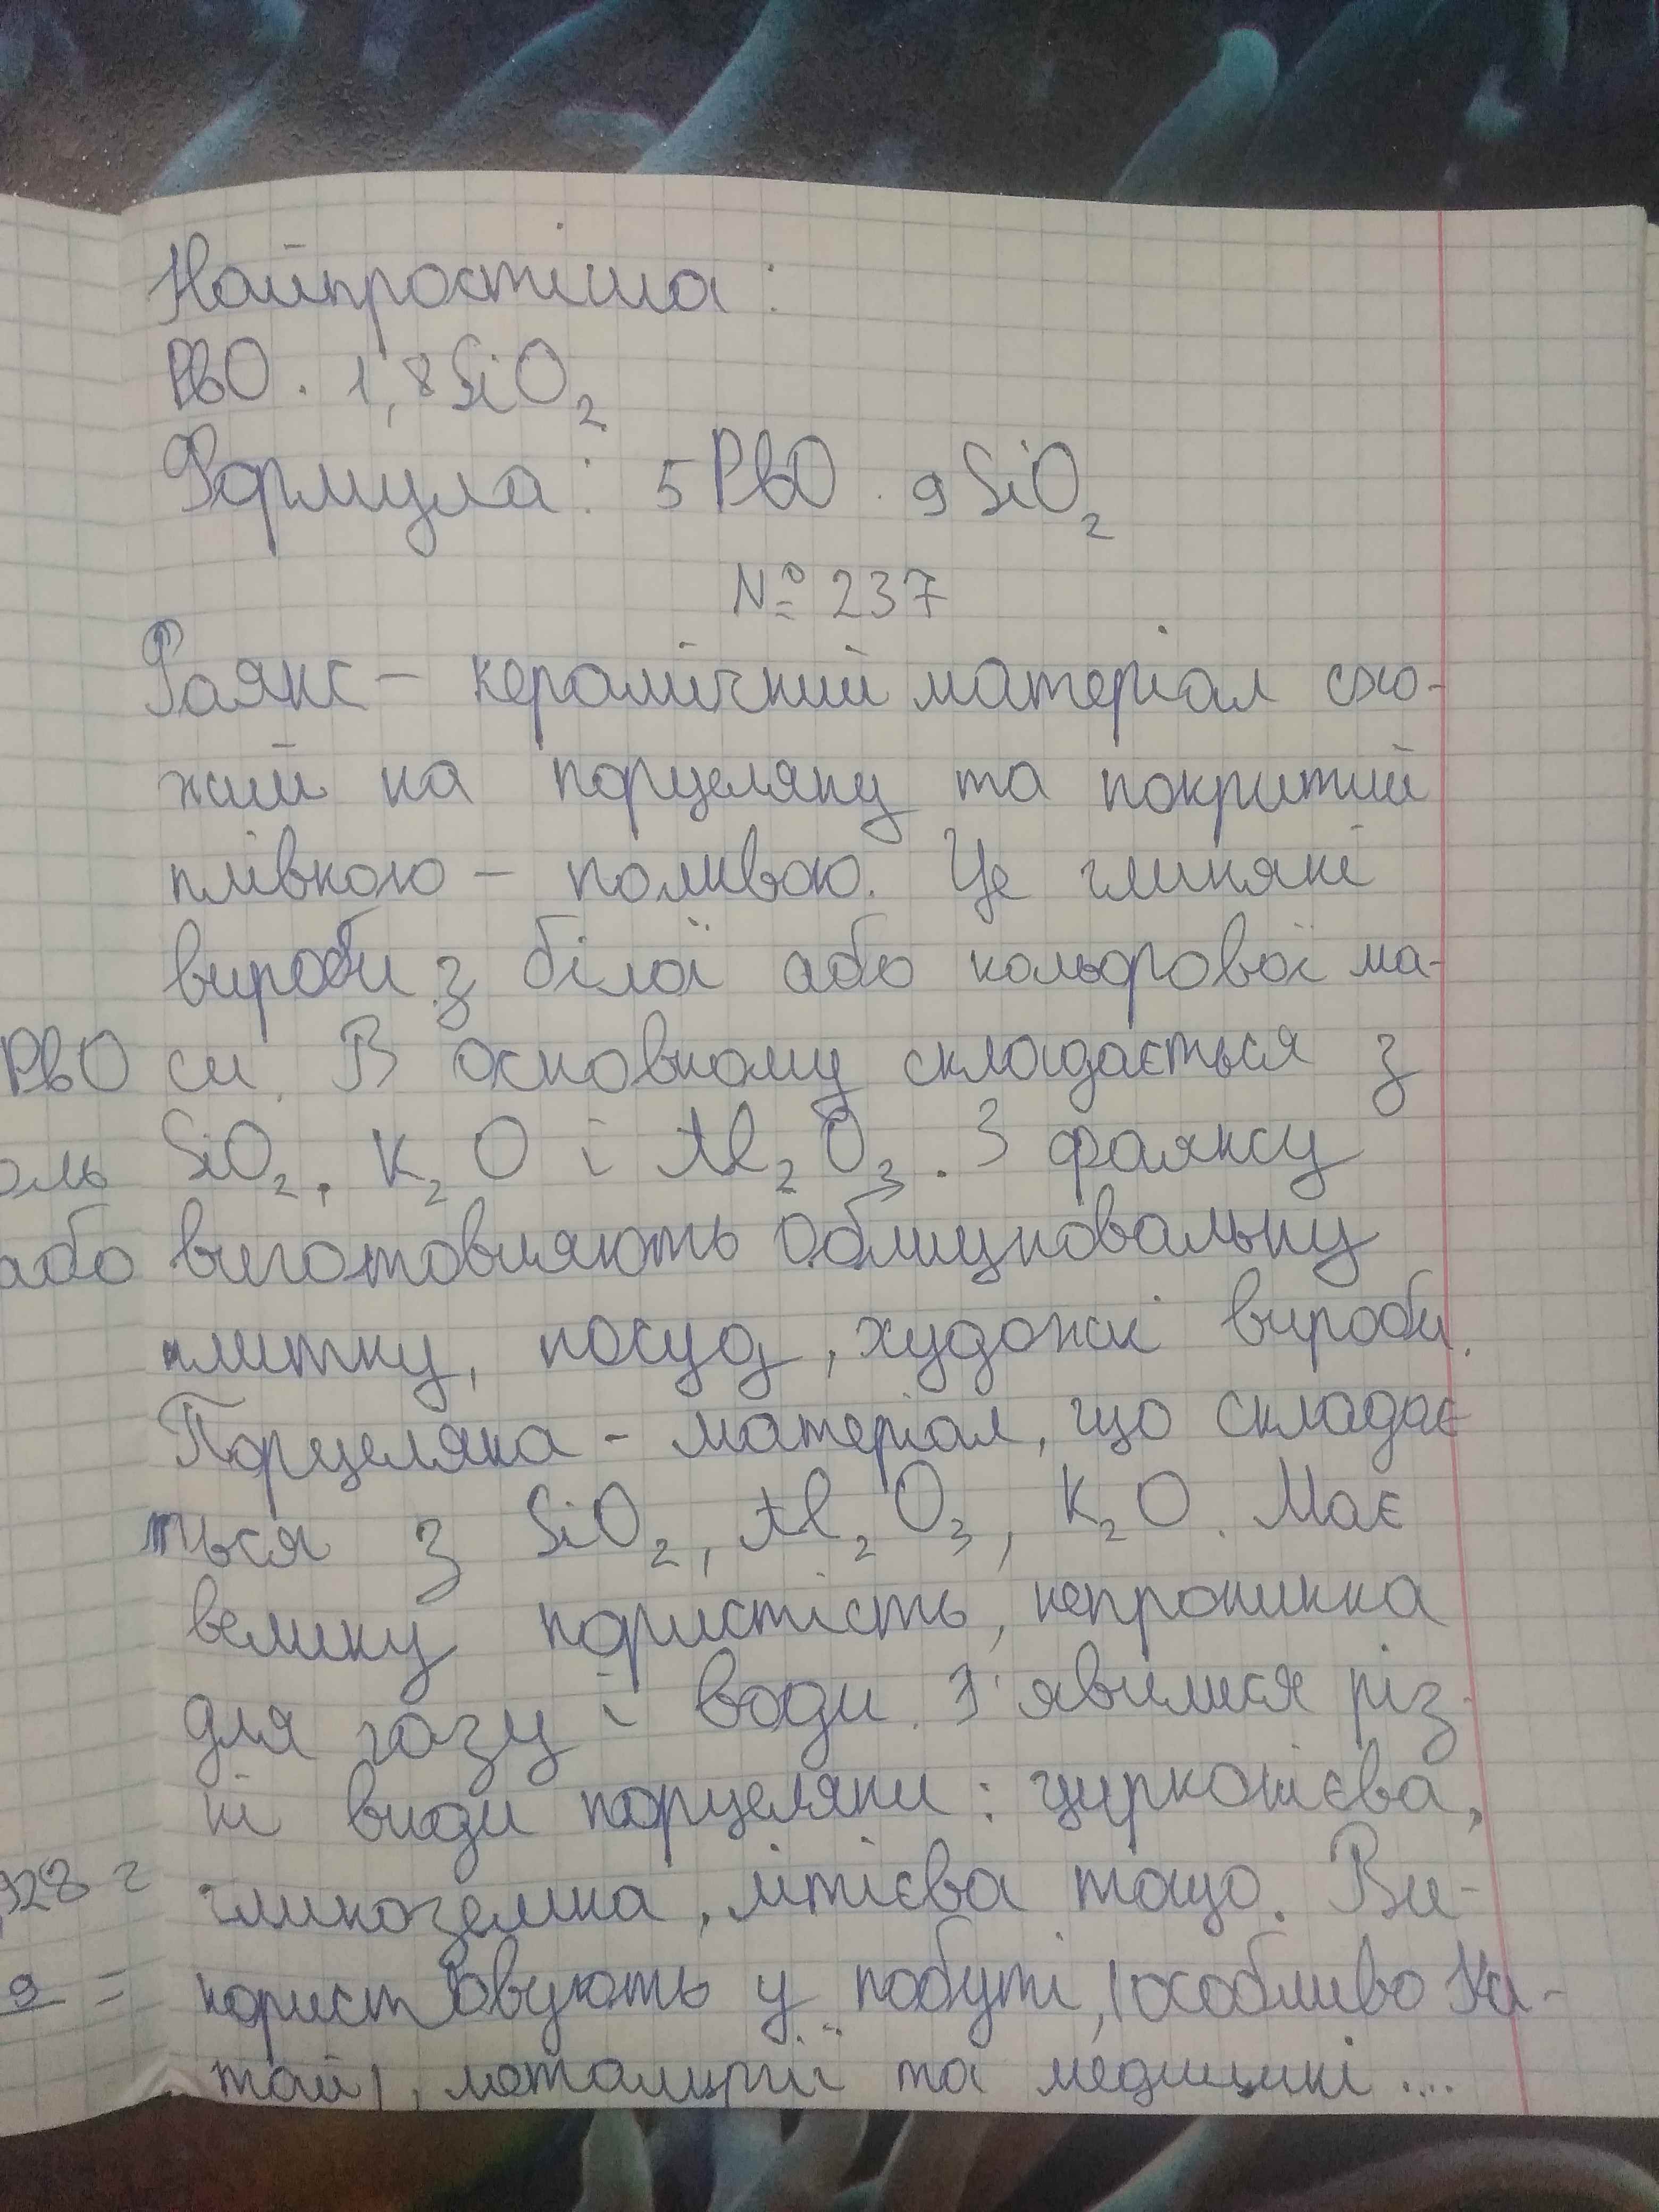 Найпростіша:
PbO · 1,8SiO₂
Формула: 5PbO · 9SiO₂
№ 237
Фаянс – керамічний матеріал схо-
жий на порцеляну та покритий
плівкою – поливою. Це глиняні
вироби з білої або кольорової ма-
PbO си. В основному складається з
оль SiO₂, K₂O і Al₂O₃. З фаянсу
або виготовляють облицювальну
плитку, посуд, художні вироби.
Порцеляна – матеріал, що складає
ться з SiO₂, Al₂O₃, K₂O. Має
велику пористість, непроникна
для газу і води. З'явилися різ-
ні види порцеляни: цирконієва,
928 г глиноземна, літієва тощо. Ви-
9 = користовують у побуті, (особливо Ки-
таї), металургії та медицині ...